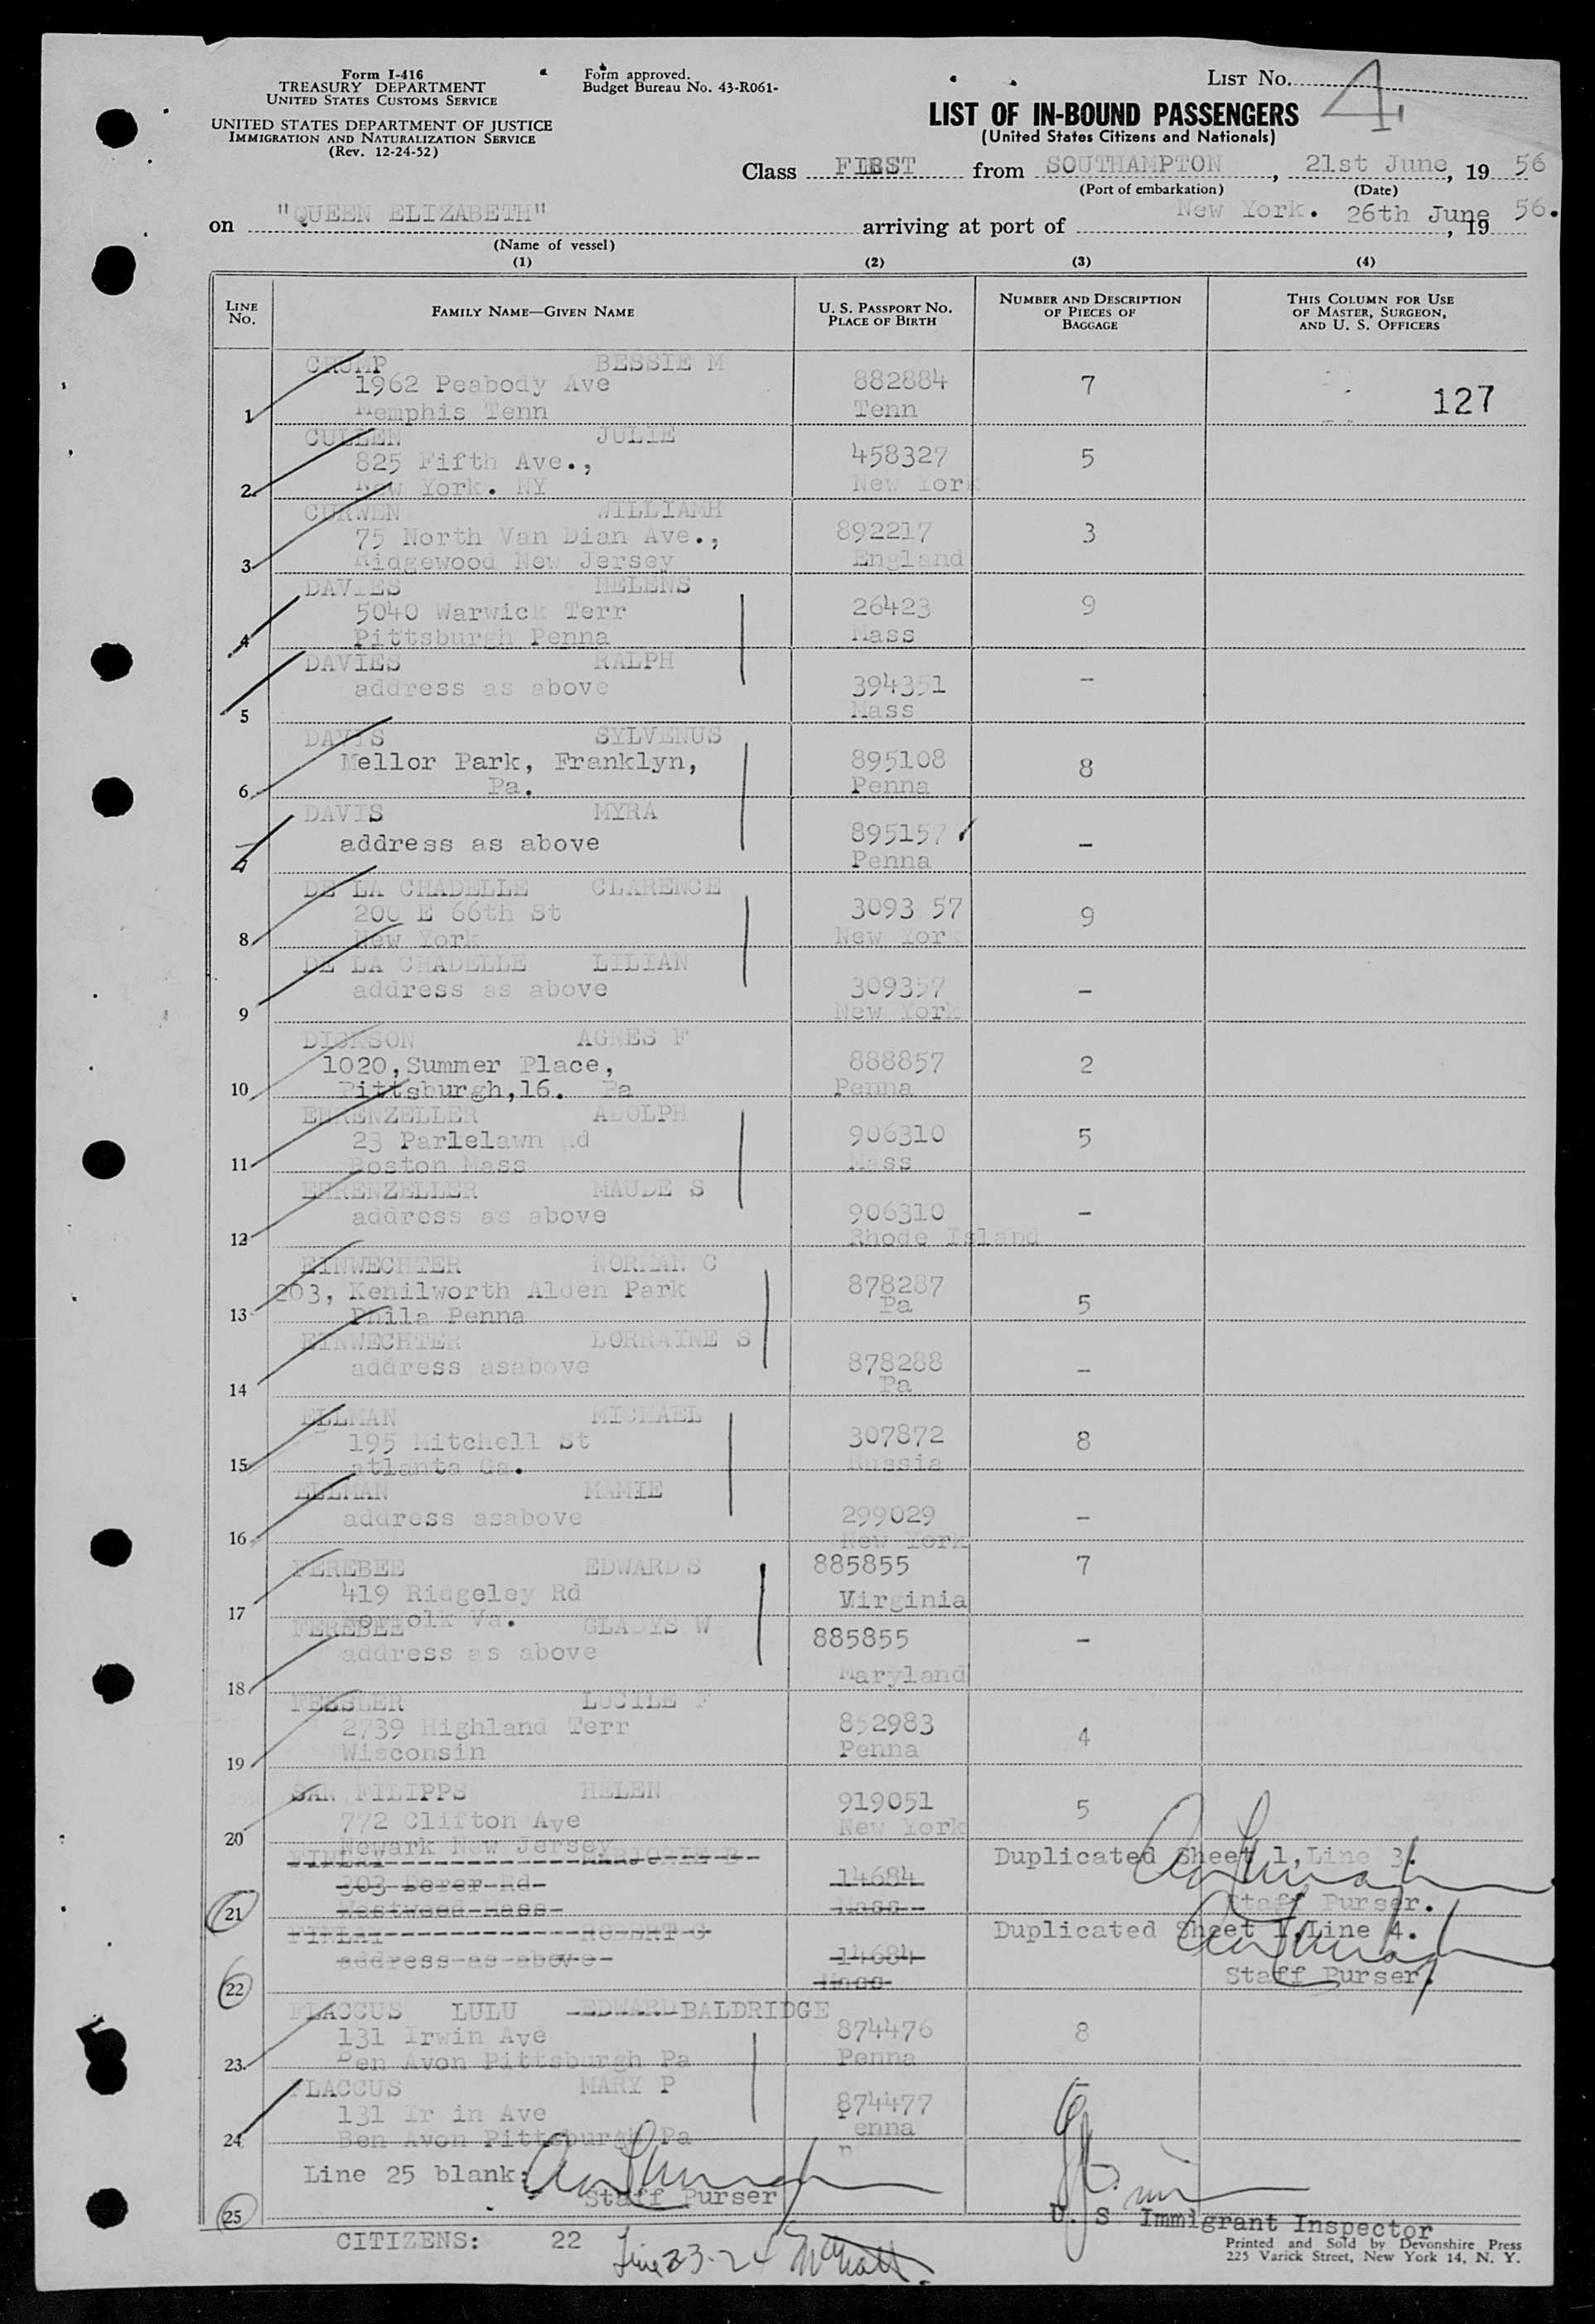 Form I-416
TREASURY DEPARTMENT
UNITED STATES CUSTOMS SERVICE
UNITED STATES DEPARTMENT OF JUSTICE
IMMIGRATION AND NATURALIZATION SERVICE
(Rev. 12-24-52)
Form approved.
Budget Bureau No. 43-R061-
LIST No. 4
LIST OF IN-BOUND PASSENGERS
(United States Citizens and Nationals)
Class FIRST from SOUTHAMPTON, 21st June, 19 56
(Port of embarkation) (Date)
on "QUEEN ELIZABETH" arriving at port of New York. 26th June, 19 56.
(Name of vessel)
(1) (2) (3) (4)
LINE No. FAMILY NAME—GIVEN NAME U. S. PASSPORT No. PLACE OF BIRTH NUMBER AND DESCRIPTION OF PIECES OF BAGGAGE THIS COLUMN FOR USE OF MASTER, SURGEON, AND U. S. OFFICERS
CRUMP BESSIE M
1962 Peabody Ave 882884 7 127
1 Memphis Tenn Tenn
CULLEN JULIE
825 Fifth Ave., 458327 5
2 New York. NY New York
CURWEN WILLIAMH
75 North Van Dian Ave., 892217 3
3 Ridgewood New Jersey England
DAVIES HELENS
5040 Warwick Terr 26423 9
4 Pittsburgh Penna Mass
DAVIES RALPH
address as above 394351 -
5 Mass
DAVIS SYLVENUS
Mellor Park, Franklyn, 895108 8
6 Pa. Penna
DAVIS MYRA
address as above 895157 -
7 Penna
DE LA CHADELLE CLARENCE
200 E 66th St 3093 57 9
8 New York New York
DE LA CHADELLE LILIAN
address as above 309357 -
9 New York
DICKSON AGNES F
1020, Summer Place, 888857 2
10 Pittsburgh,16. Pa Penna
EHRENZELLER ADOLPH
23 Parlelawn d 906310 5
11 Boston Mass Mass
EHRENZELLER MAUDE S
address as above 906310 -
12 Rhode Island
EINWECHTER NORMAN C
203, Kenilworth Alden Park 878287 5
13 Phila Penna Pa
EINWECHTER LORRAINE S
address asabove 878288 -
14 Pa
ELLMAN MICHAEL
195 Mitchell St 307872 8
15 atlanta Ga. Russia
ELLMAN MAMIE
address asabove 299029 -
16 New York
FEREBEE EDWARDS 885855 7
419 Ridgeley Rd Virginia
17 Norfolk Va.
FEREBEE GLADYS W 885855 -
address as above
18 Maryland
FESSLER LUCILE F
2739 Highland Terr 852983 4
19 Wisconsin Penna
SAN FILIPPS HELEN 919051 5
772 Clifton Ave New York
20 Newark New Jersey
FINLAY MARJORIE B Duplicated Sheet 1, Line 3.
303 Dorer Rd 14684
21 Westwood Mass Mass Staff Purser.
FINLAY ROBERT G Duplicated Sheet 1, Line 4.
address as above 14684
22 Mass Staff Purser.
FLACCUS LULU EDWARD BALDRIDGE
131 Irwin Ave 874476 8
23 Ben Avon Pittsburgh Pa Penna
FLACCUS MARY P
131 Ir in Ave 874477 -
24 Ben Avon Pittsburgh Pa enna
Line 25 blank:
Staff Purser
25
U. S Immigrant Inspector
CITIZENS: 22 Line 23-24
Printed and Sold by Devonshire Press
225 Varick Street, New York 14, N. Y.